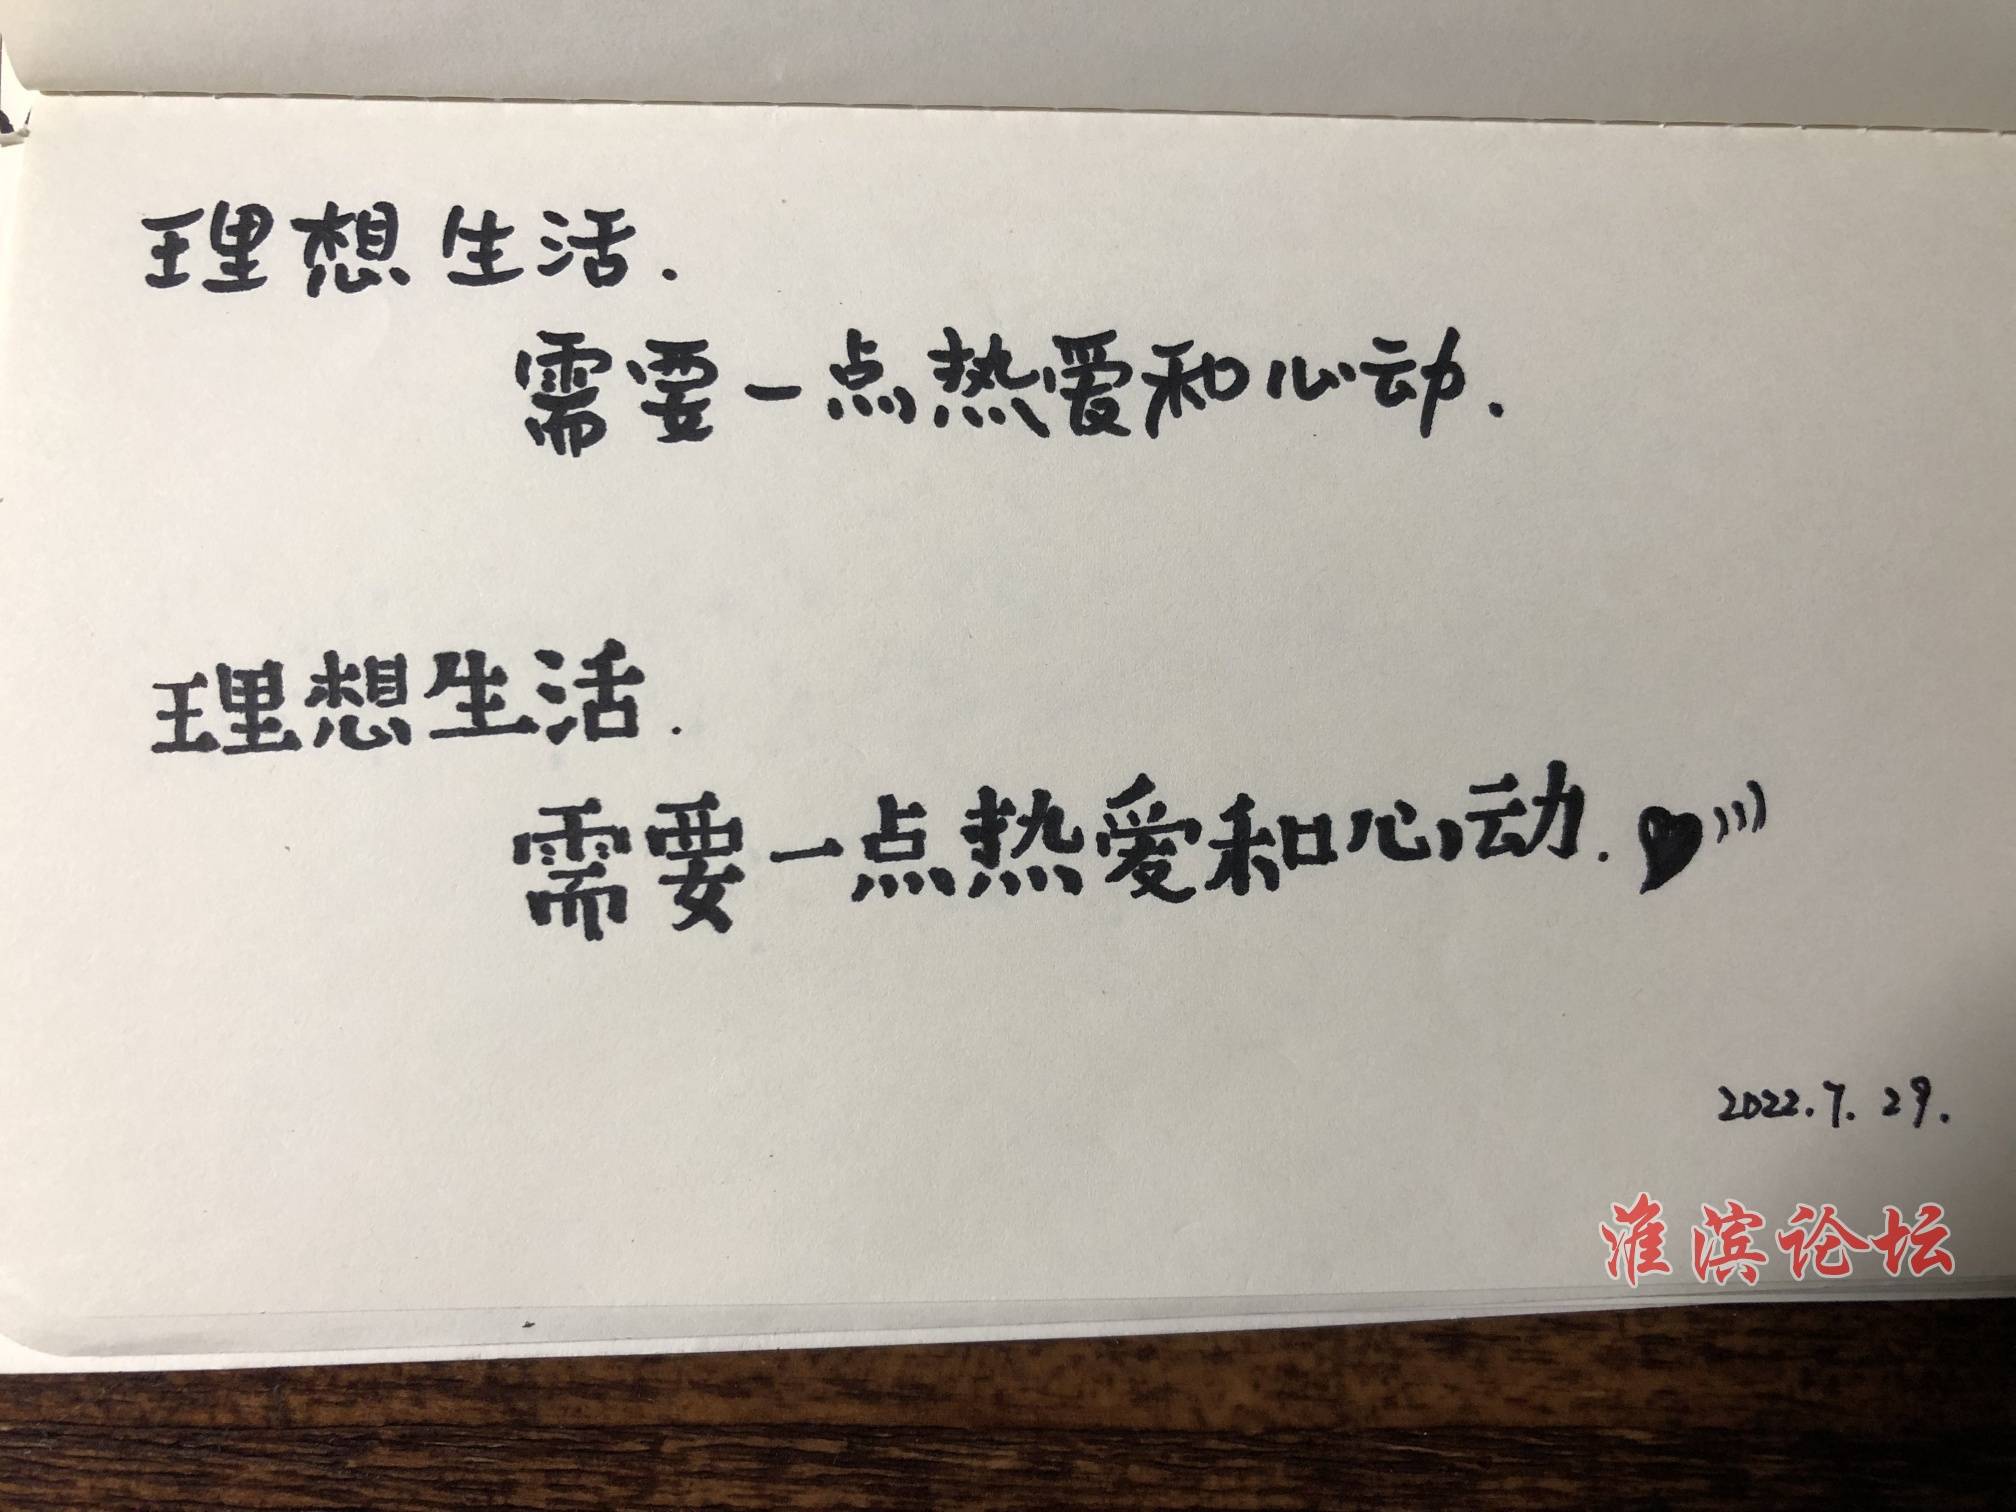 理想生活.
需要一点热爱和心动.
理想生活.
需要一点热爱和心动.
2022.7.29.
淮滨论坛